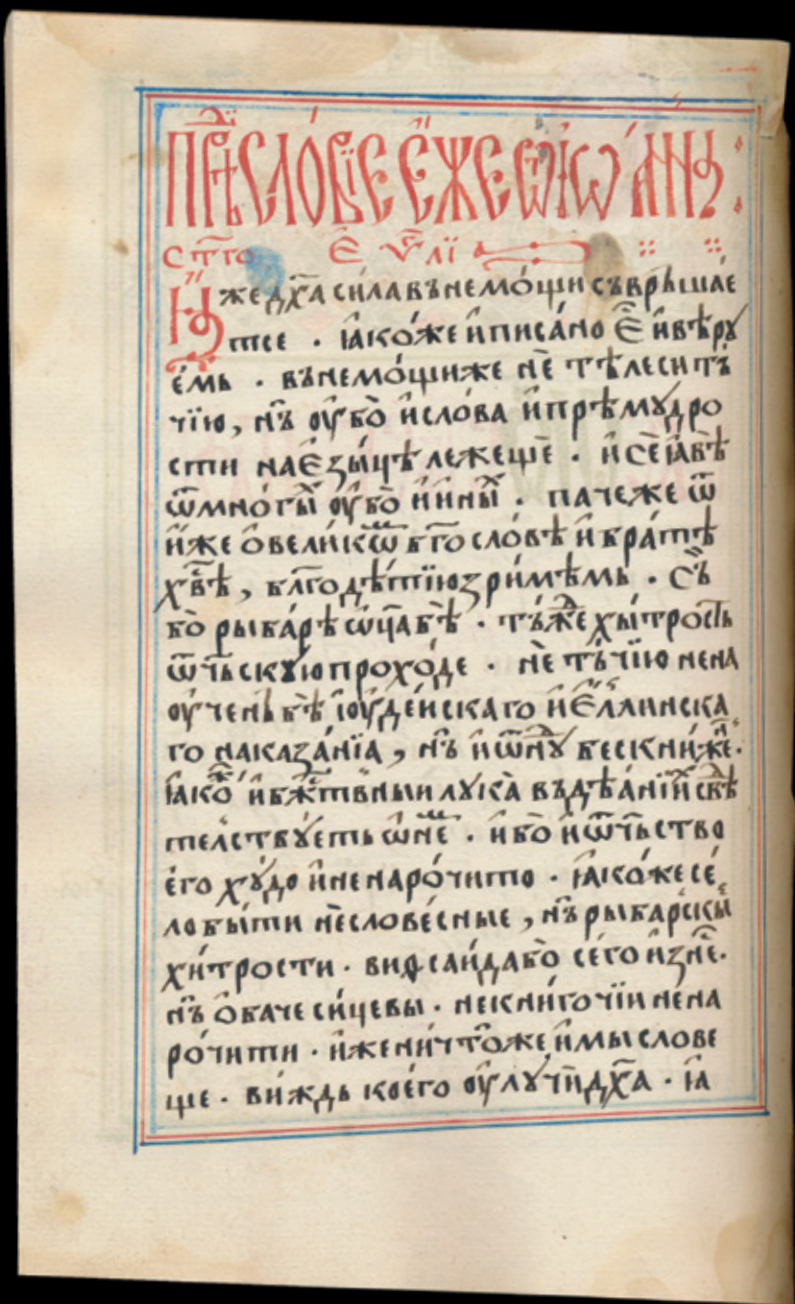 прѣⷣсло́вїе є҆́же ѿ і҆ѡа́нна :
ст҃го є҆ѵⷢ҇лї
И҆́же дх҃а си́ла въ немо́щи съвръша́е
тсе · ꙗ҆ко́же и҆ писа́но є҆̀ и҆ вѣ́рꙋ
емь · въ немо́щи же нѐ тѣлесн тъ́
чїю, нъ̀ ѹ҆́бо и҆ сло́ва и҆ прѣмѹ́дро
сти на є҆зы́цѣ лежещѐ · и҆ сѐ ꙗ҆́вѣ
ѿ мно́гыⷯ ѹ҆́бо и҆ и҆ны́ⷯ · па че же ѿ
и҆́же о҆ вели́кѡⷨ бг҃осло́вѣ и҆ бра́тѣ
хв҃ѣ, блг҃одѣ́тїю зри́мѣмь · съ́
бо̀ рыба́рѣ ѡ҆ц҃а бѣ̀ · тъ́ⷤе хы́трость
ѿчьскꙋ́ю прохо́де · нѐ тъ́чїю нена
ѹ҆чень бѣ̀ і҆ѹде́искаго и҆ є҆́ллинска
го наказа́нїа, нъ̀ и҆ ѿнѹ́ⷣ бескни́жеⷩ ·
ꙗ҆ко́ⷤ и҆ бжⷭ҇твныи лꙋка̀ въ дѣа́нїиⷯ свⷣѣ
телствꙋ́еть ѡ҆ не́мⷨ · и҆́бо и҆ ѿчьство
є҆го̀ хꙋ́до и҆ не наро́чито · ꙗ҆ко́же се́
ло бы́ти нѐслове́сные, нъ̀ рыба́рьскы
хи́трости · виѳсаи́да бо̀ сего̀ и҆зне́ⷭ ·
нъ̀ о҆ба́че си́цевы · не кни́гочїи не на
ро́чити · и҆́же ничто́же и҆мы слове
ще · ви́ждь коего̀ ѹ҆лꙋчѝ дх҃а · ꙗ҆